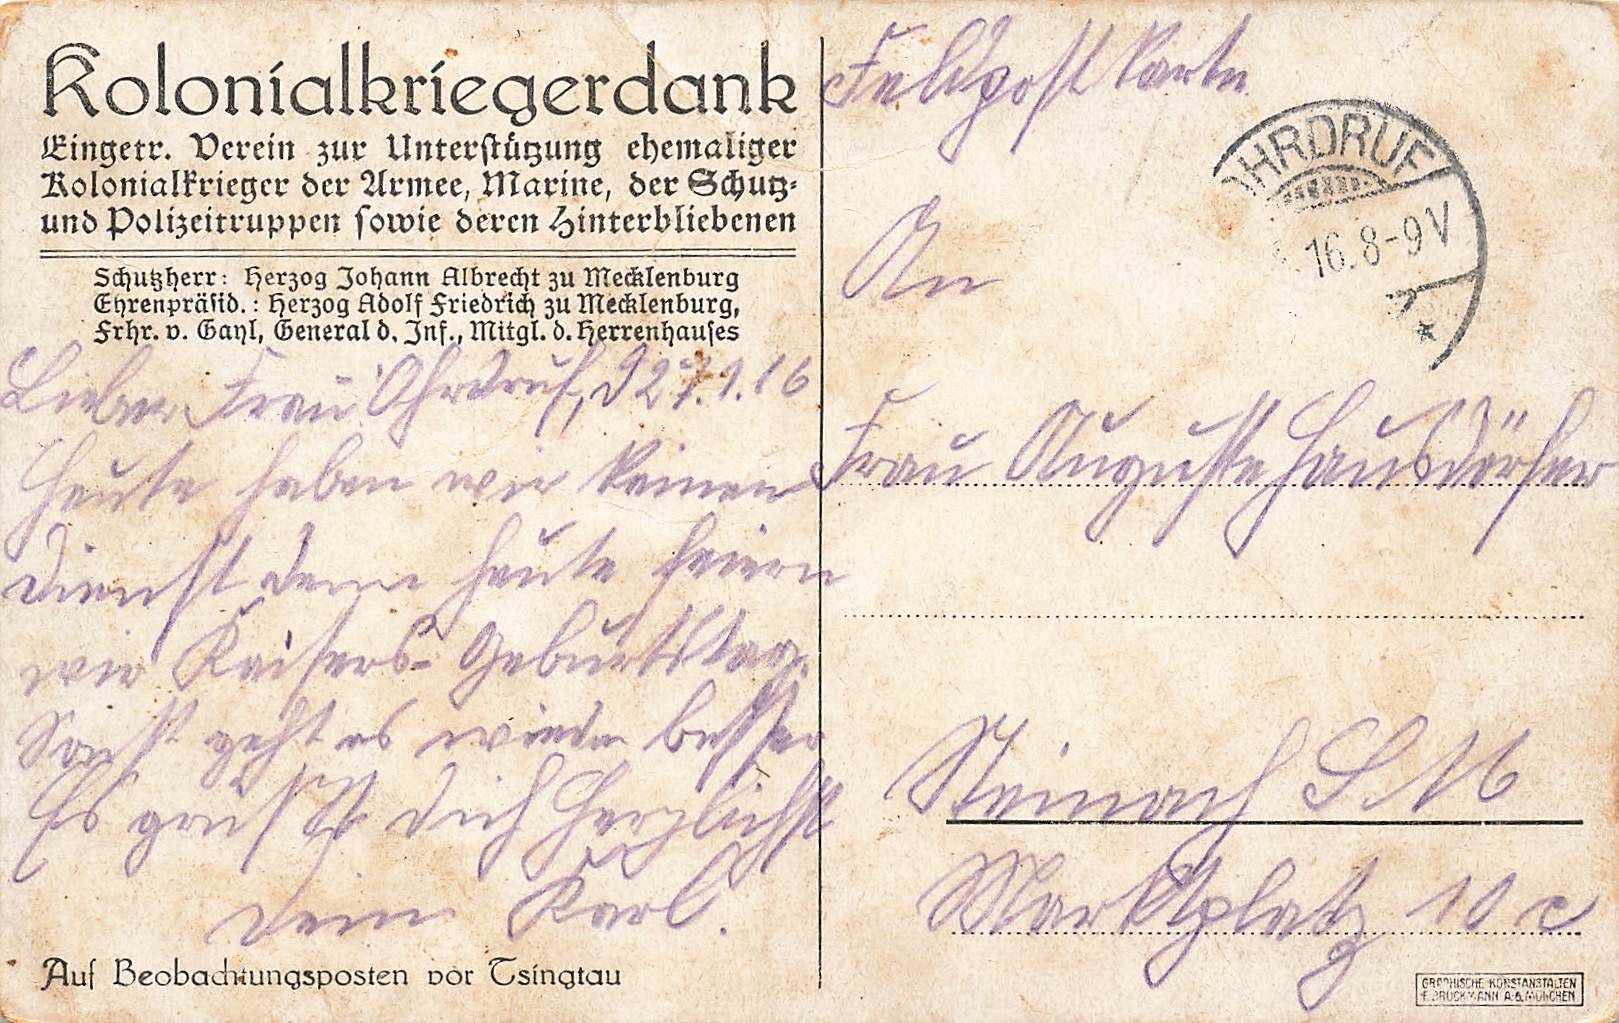 Kolonialkriegerdank
Eingetr. Verein zur Unterstützung ehemaliger
Kolonialkrieger der Armee, Marine, der Schutz-
und Polizeitruppen sowie deren Hinterbliebenen
Schutzherr: Herzog Johann Albrecht zu Mecklenburg
Ehrenpräsid.: Herzog Adolf Friedrich zu Mecklenburg,
Frhr. v. Gayl, General d. Inf., Mitgl. d. Herrenhauses
Liebe Frau! Ohrdruf, d 27.1.16
Heute haben wir keinen
Dienst denn heute feiern
wir Kaisers-Geburtstag.
Sonst geht es wieder besser
Es grüßt Dich Herzlichst
Dein Karl.
Auf Beobachtungsposten vor Tsingtau
Feldpostkarte
OHRDRUF
16. 8-9V
An
Frau Auguste Hausdörfer
Steinach S. M
Marktplatz 10 c
GRAPHISCHE KUNSTANSTALTEN
F. BRUCKMANN A.G. MÜNCHEN